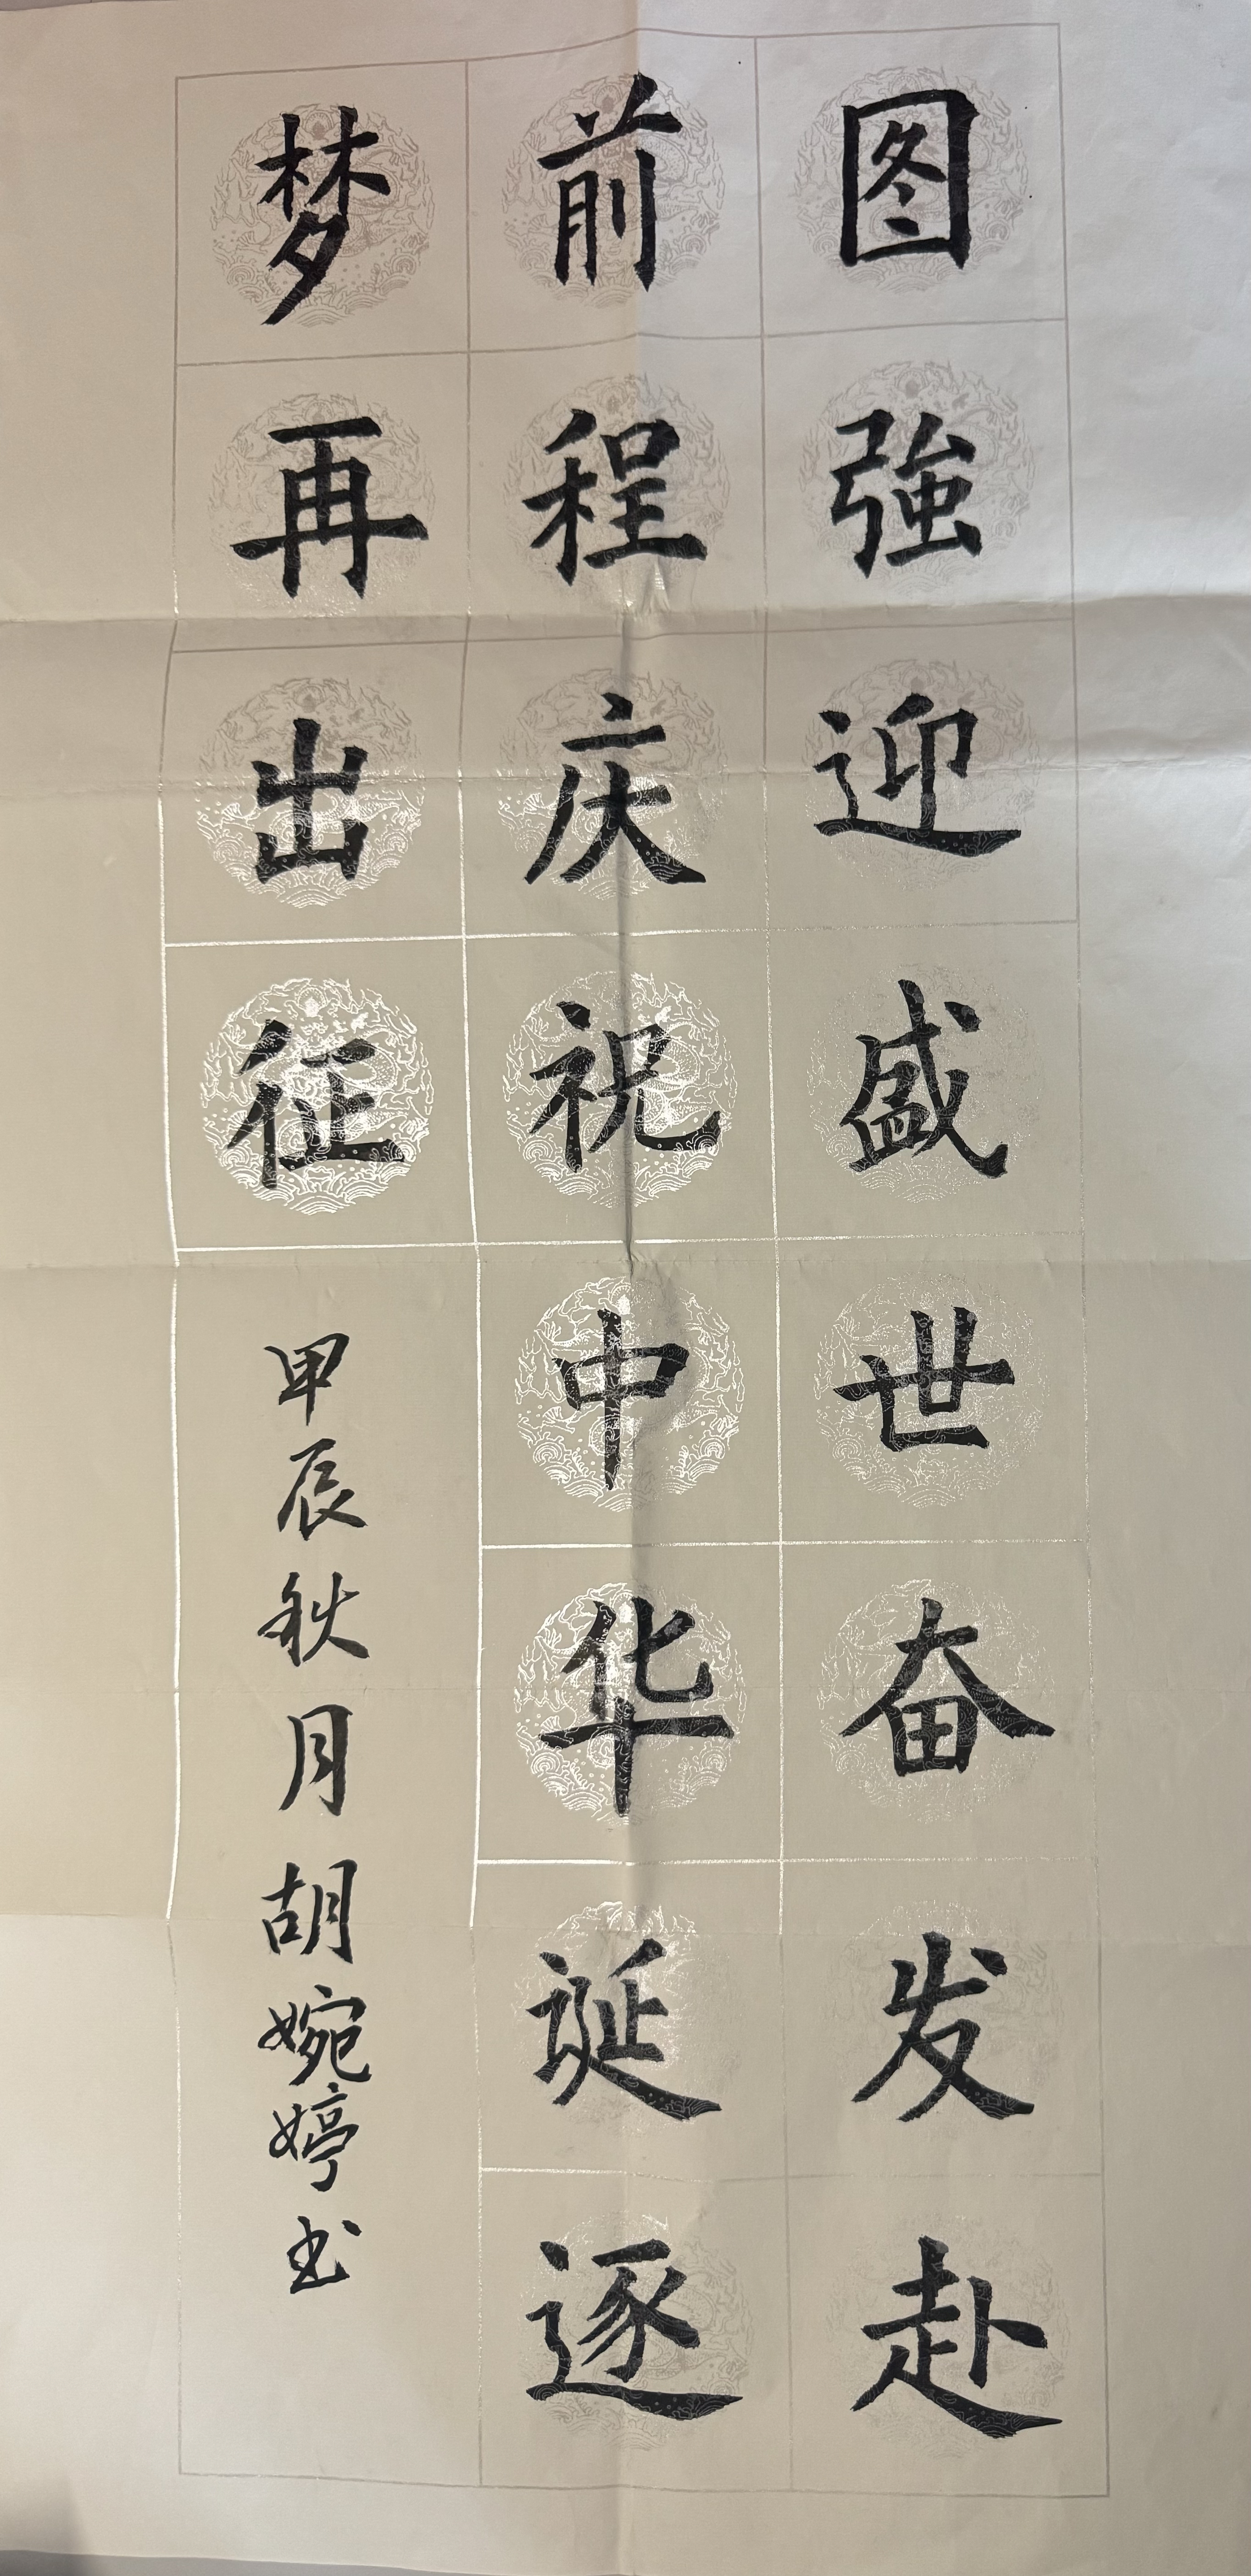 图強迎盛世奋发赴
前程庆祝中华诞逐
梦再出征
甲辰秋月胡婉婷书